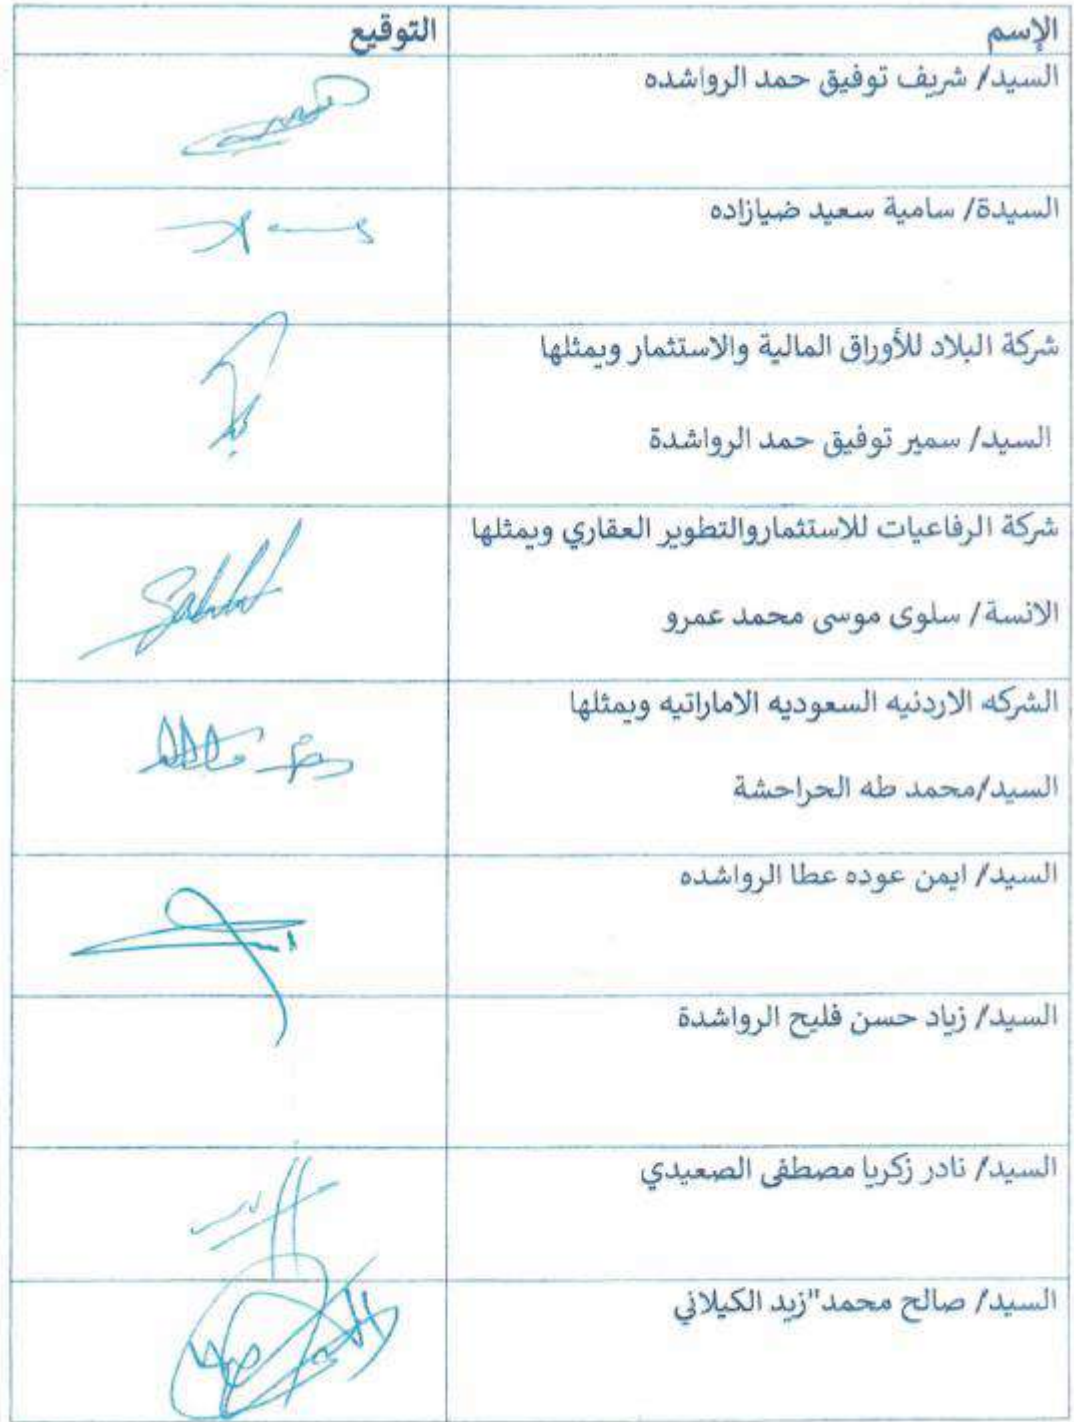 الإسم التوقيع
السيد/ شريف توفيق حمد الرواشده
السيدة/ سامية سعيد ضيازاده
شركة البلاد للأوراق المالية والاستثمار ويمثلها
السيد/ سمير توفيق حمد الرواشدة
شركة الرفاعيات للاستثماروالتطوير العقاري ويمثلها
الانسة/ سلوى موسى محمد عمرو
الشركه الاردنيه السعوديه الاماراتيه ويمثلها
السيد/محمد طه الحراحشة
السيد/ ايمن عوده عطا الرواشده
السيد/ زياد حسن فليح الرواشدة
السيد/ نادر زكريا مصطفى الصعيدي
السيد/ صالح محمد"زيد الكيلاني